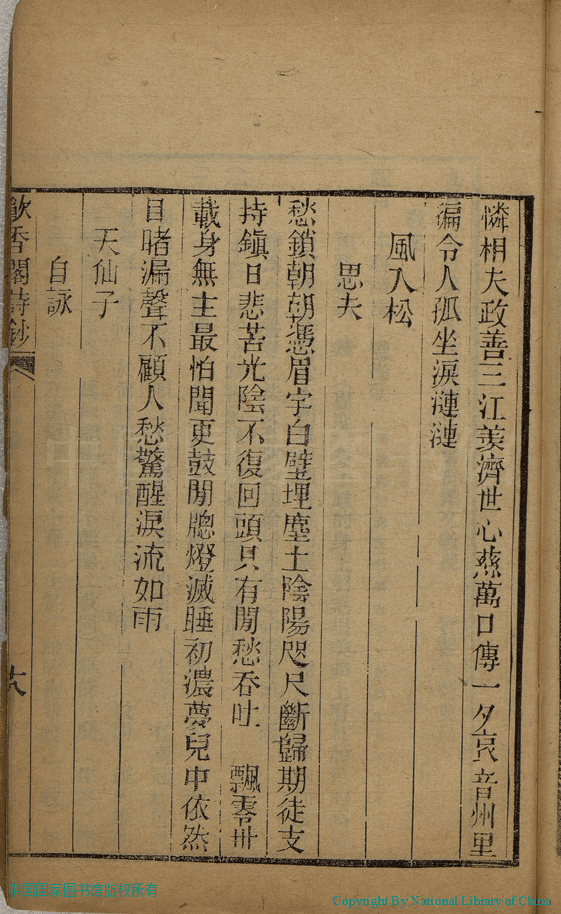 憐相夫政善三江羨濟世心慈萬口傳一夕哀音州里
徧令人孤坐淚漣漣
風入松
思夫
愁鎖朝朝慿眉宇白璧埋塵土陰陽咫尺斷歸期徒支
持鎭日悲苦光陰不復回頭只有閒愁吞吐　飄零卅
載身無主最怕聞更鼓閒牕燈滅睡初濃夢兒中依然
目睹漏聲不顧人愁驚醒淚流如雨
天仙子
自詠
歈香閣詩鈔
十八
中国国家图书馆版权所有
Copyright By National Library of China